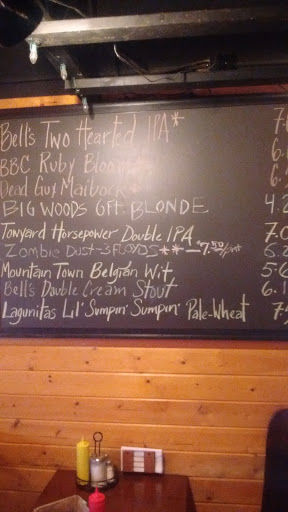 Bell's Two Hearted IPA* 7.0
BBC Ruby Bloom 6.
Dead Guy Maibock 6.
BIG WOODS 6ft. BLONDE 4.2
Tonyard Horsepower Double IPA 7.0
Zombie Dust-3 FLOYDS ** - 7.50/pint 6.2
Mountain Town Belgian Wit 5.6
Bell's Double Cream Stout 6.1
Lagunitas Lil' Sumpin' Sumpin' Pale-Wheat 7.